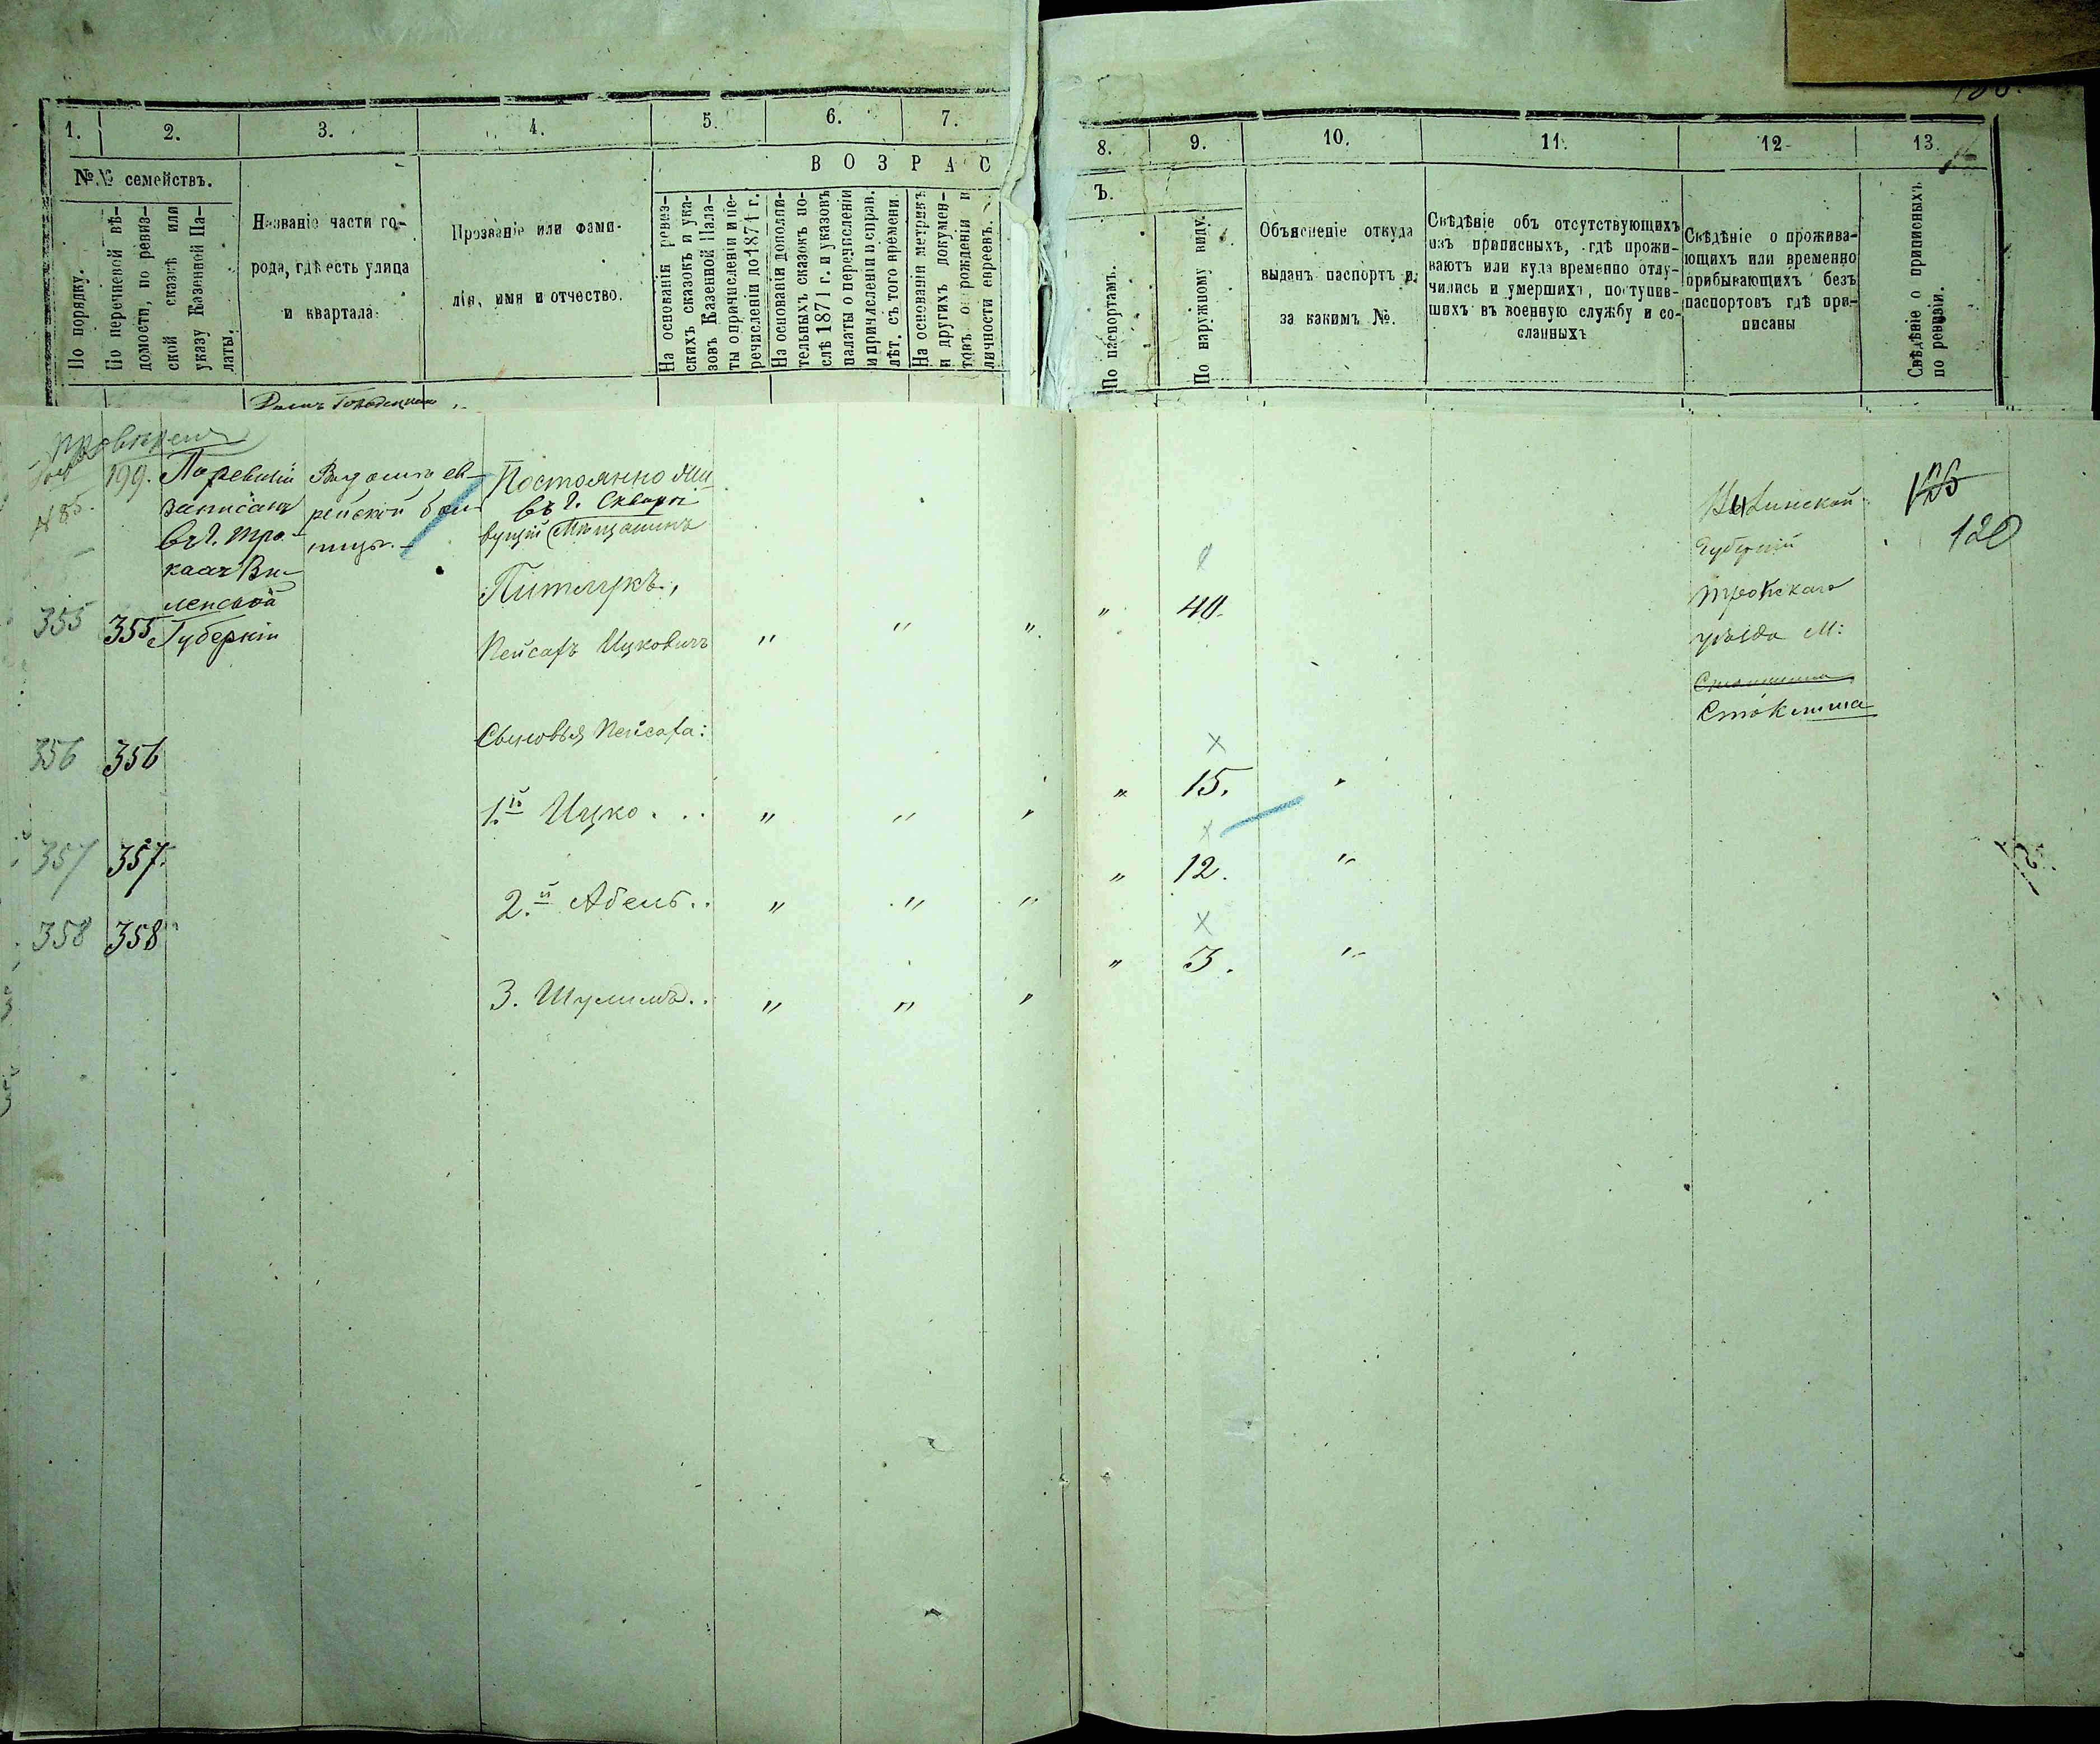 1. 2. 3. 4. 5. 6. 7.
№№ семействъ.
По порядку.
По перечневой вѣ-
домости, по ревиз-
ской сказкѣ или
указу Казенной Па-
латы.
Названіе части го-
рода, гдѣ есть улица
и квартала
Прозваніе или фами-
лія, имя и отчество.
В О З Р А С
На основаніи ревиз-
скихъ сказокъ и ука-
зовъ Казенной Пала-
ты о причисленіи и пе-
речисленіи до 1871 г.
На основаніи дополни-
тельныхъ сказокъ по-
слѣ 1871 г. и указовъ
палаты о перечисленіи
и причисленіи и справ.
лѣт. съ того времени.
На основаніи метрикъ
и другихъ докумен-
товъ о рожденіи и
личности евреевъ.
8. 9. 10. 11. 12 13.
Ъ.
По паспортамъ.
По наружному виду.
Объясненіе откуда
выданъ паспортъ и
за какимъ №.
Свѣдѣніе объ отсутствующихъ
изъ приписныхъ, гдѣ прожи-
ваютъ или куда временно отлу-
чились и умершихъ, поступив-
шихъ въ военную службу и со-
сланныхъ
Свѣдѣніе о прожива-
ющихъ или временно
прибывающихъ безъ
паспортовъ гдѣ при-
писаны
Свѣдѣніе о приписныхъ
по ревизіи.
Домъ
199.
записанъ
въ г. Тро-
кахъ Ви-
ленской
Губерніи
рейской боль-
ницы.
Постоянно жи-
въ г. Сквиры
вущій Мѣщанинъ
Питлукъ,
355 355 Пейсахъ Ицковичъ " " " " 40.
Виленской
Губерніи
Трокскаго
уѣзда М:
Стоклишки
125
120
Сыновья Пейсаха:
356 356 1.й Ицко . . . " " " " 15.
357 357. 2.й Абель . . " " " " 12. "
358 358 3. Шулимъ . . " " " " 3. "